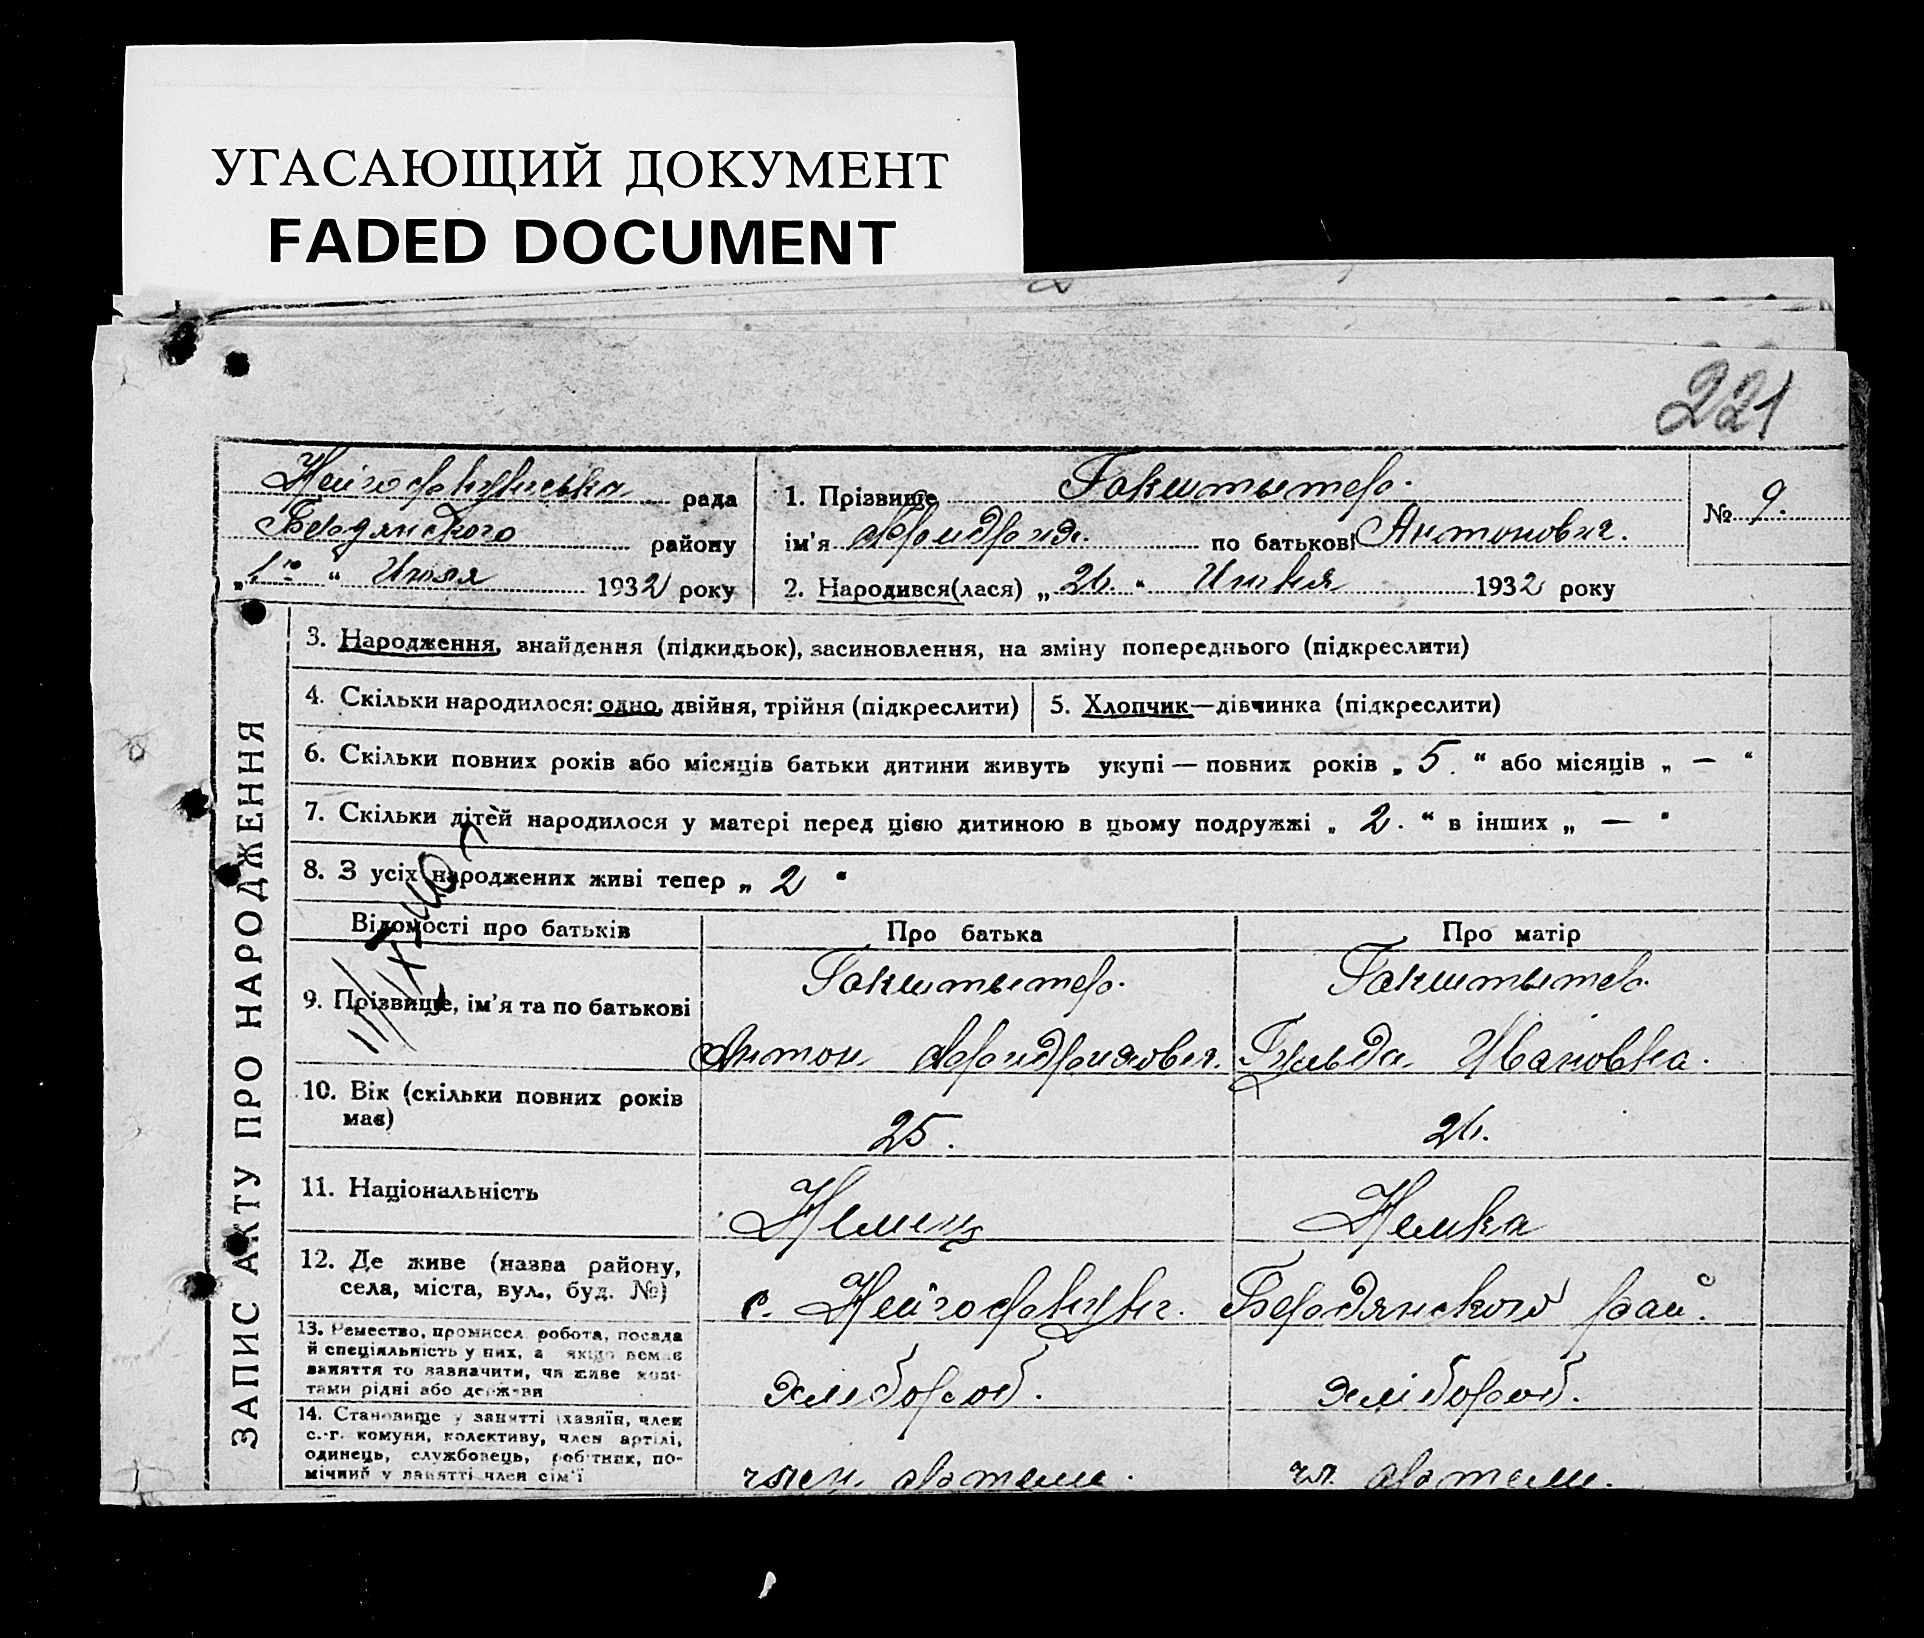 УГАСАЮЩИЙ ДОКУМЕНТ
FADED DOCUMENT
221
рада
Бердянского району
„1го“ Июля 1932 року
1. Прізвище Гокштетер.
ім'я Фридрих. по батькові Антонович.
2. Народився(лася) „26.“ Июня 1932 року
№ 9.
ЗАПИС АКТУ ПРО НАРОДЖЕННЯ
3. Народження, знайдення (підкидьок), засиновлення, на зміну попереднього (підкреслити)
4. Скільки народилося: одно, двійня, трійня (підкреслити)
5. Хлопчик—дівчинка (підкреслити)
6. Скільки повних років або місяців батьки дитини живуть укупі — повних років „5.“ або місяців „—“
7. Скільки дітей народилося у матері перед цією дитиною в цьому подружжі „2.“ в інших „—“
8. З усіх народжених живі тепер „2“
Відомості про батьків
Про батька
Про матір
9. Прізвище, ім'я та по батькові
Гокштетер.
Антон Фридрихович.
Гокштетер.
Гульда Ивановна.
10. Вік (скільки повних років має)
25.
26.
11. Національність
Немец
Немка
12. Де живе (назва району,
села, міста, вул., буд. №)
с. Нейгофнунг. Бердянского рай.
13. Ремество, промисел робота, посада
й спеціяльність у них, а якщо немає
заняття то зазначити, чи живе кош-
тами рідні або держави
хлібороб.
хлібороб.
14. Становище у занятті (хазяїн, член
с.-г. комуни, колективу, член артілі,
одинець, службовець, робітник, по-
мічний у занятті член сім'ї
член артели.
чл. артели.